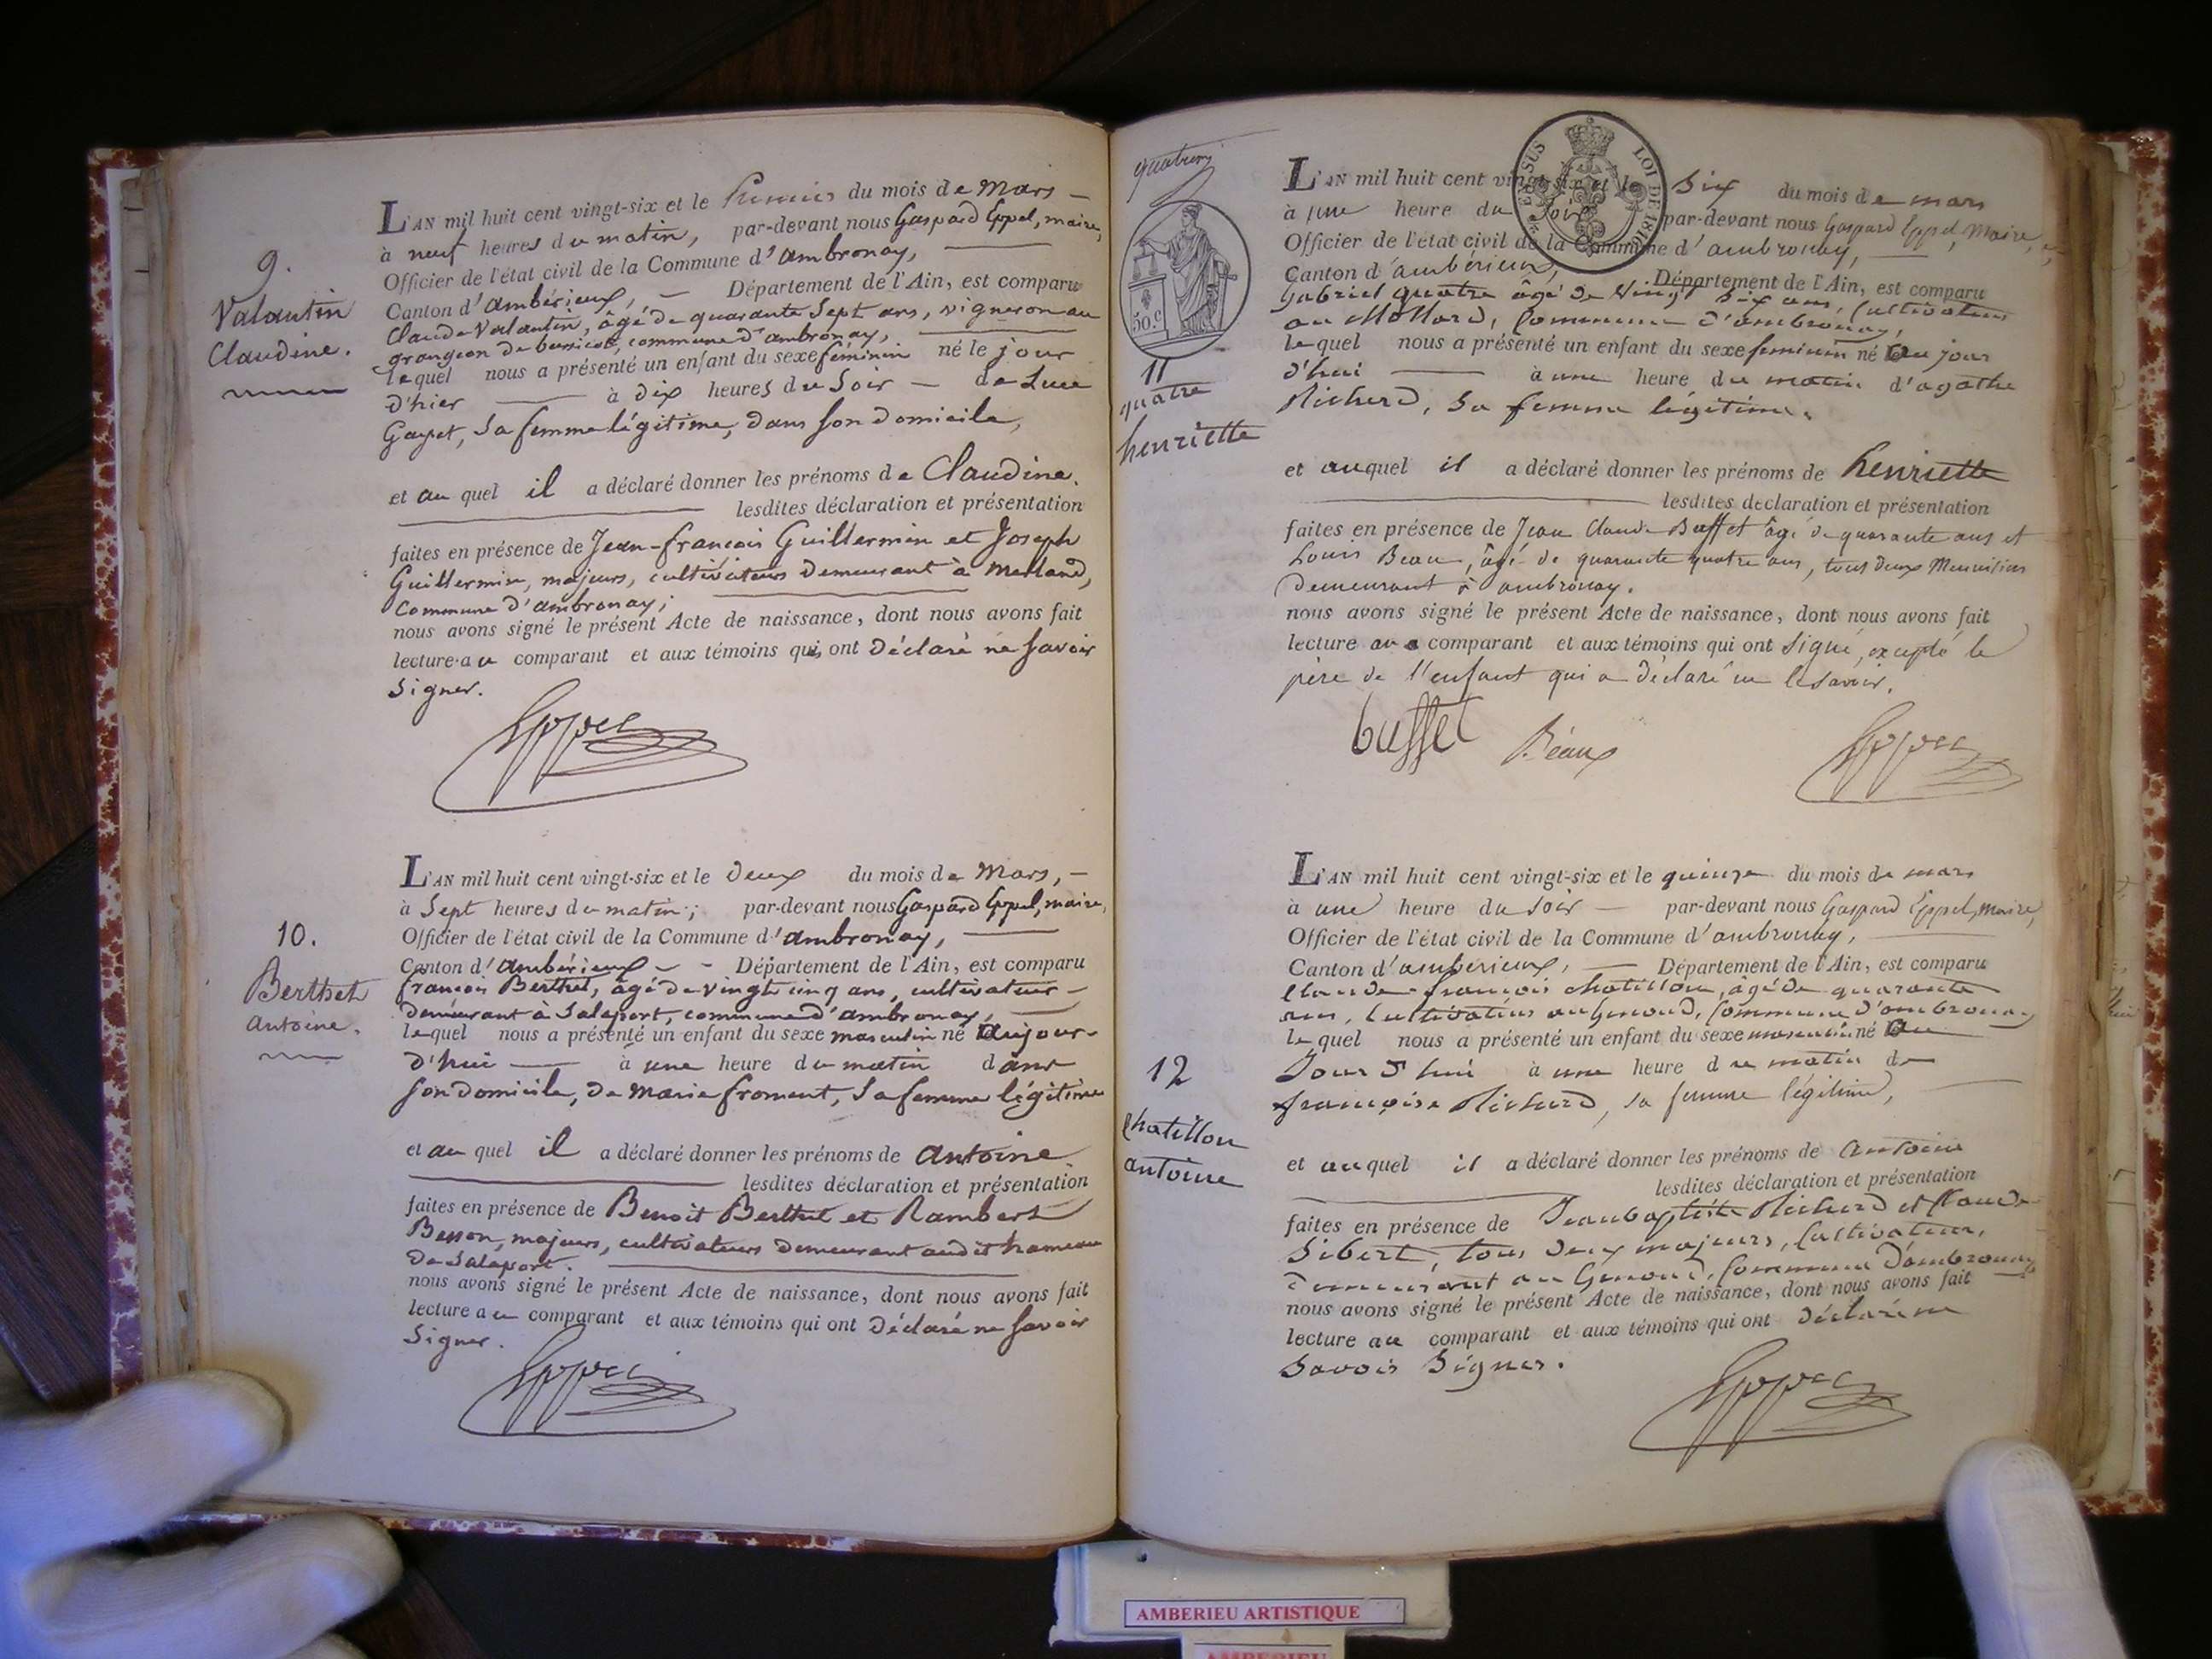 9.
Valantin
Claudine.
L'AN mil huit cent vingt-six et le Premier du mois de Mars –
à neuf heures du matin, par-devant nous Gaspard Eppel, maire,
Officier de l'état civil de la Commune d'ambronay,
Canton d'ambérieux, – Département de l'Ain, est comparu
Claude Valantin, âgé de quarante sept ans, vigneron au
grangeon de commune d'ambronay,
lequel nous a présenté un enfant du sexe féminin né le jour
d'hier à dix heures du Soir – de Luce
Gayet, sa femme légitime, dans son domicile,
et au quel il a déclaré donner les prénoms de Claudine.
lesdites déclaration et présentation
faites en présence de Jean-françois Guillermin et Joseph
Guillermin, majeurs, cultivateurs demeurant à Merland,
Commune d'ambronay;
nous avons signé le présent Acte de naissance, dont nous avons fait
lecture au comparant et aux témoins qui, ont déclaré ne savoir
signer.
Eppel
10.
Berthet
antoine.
L'AN mil huit cent vingt-six et le deux du mois de Mars, –
à Sept heures du matin; par-devant nous Gaspard Eppel, maire,
Officier de l'état civil de la Commune d'ambronay,
Canton d'ambérieux – – Département de l'Ain, est comparu
françois Berthet, âgé de vingt cinq ans, cultivateur –
demeurant à Salaport, commune d'ambronay,
lequel nous a présenté un enfant du sexe masculin né aujour-
d'hui à une heure du matin dans
son domicile, de marie froment, sa femme légitime
et au quel il a déclaré donner les prénoms de antoine
lesdites déclaration et présentation
faites en présence de Benoit Berthet et Rambert
Besson, majeurs, cultivateurs demeurant audit hameau
de Salaport.
nous avons signé le présent Acte de naissance, dont nous avons fait
lecture au comparant et aux témoins qui ont déclaré ne savoir
signer.
Eppel
50.c
11
quatre
henriette
EN SUS LOI DE 1816
L'AN mil huit cent vingt-six et le Six du mois de mars
à une heure du Soir par-devant nous Gaspard Eppel, Maire,
Officier de l'état civil de la Commune d'ambronay,
Canton d'ambérieux, Département de l'Ain, est comparu
Gabriel quatre âgé de vingt six ans, Cultivateur
au Mollard, Commune d'ambronay,
lequel nous a présenté un enfant du sexe feminin né au jour
d'hui à une heure du matin d'agathe
Richerd, sa femme légitime.
et auquel il a déclaré donner les prénoms de henriette
lesdites declaration et présentation
faites en présence de Jean Claude Buffet âgé de quarante ans et
Louis Beau, âgé de quarante quatre ans, tous deux Menuisiers
demeurant à ambronay.
nous avons signé le présent Acte de naissance, dont nous avons fait
lecture au comparant et aux témoins qui ont signé, excepté le
père de l'enfant qui a déclaré ne le savoir.
buffet Béaux Eppel
12
Chatillon
antoine
L'AN mil huit cent vingt-six et le quinze du mois de mars
à une heure du soir – par-devant nous Gaspard Eppel, Maire,
Officier de l'état civil de la Commune d'ambronay,
Canton d'ambérieux, – Département de l'Ain, est comparu
Claude françois chatillon, âgé de quarante
ans, Cultivateur au Genoud, Commune d'ambronay
lequel nous a présenté un enfant du sexe masculin né au
Jour d'hui à une heure du matin de
françoise Richerd, sa femme légitime,
et auquel il a déclaré donner les prénoms de antoine
lesdites déclaration et présentation
faites en présence de Jean baptiste Richerd et Claude
Sibert, tous deux majeurs, Cultivateurs,
demeurant au Genoud, Commune d'ambronay
nous avons signé le présent Acte de naissance, dont nous avons fait
lecture au comparant et aux témoins qui ont déclaré ne
savoir signer.
Eppel
AMBERIEU ARTISTIQUE
AMBERIEU